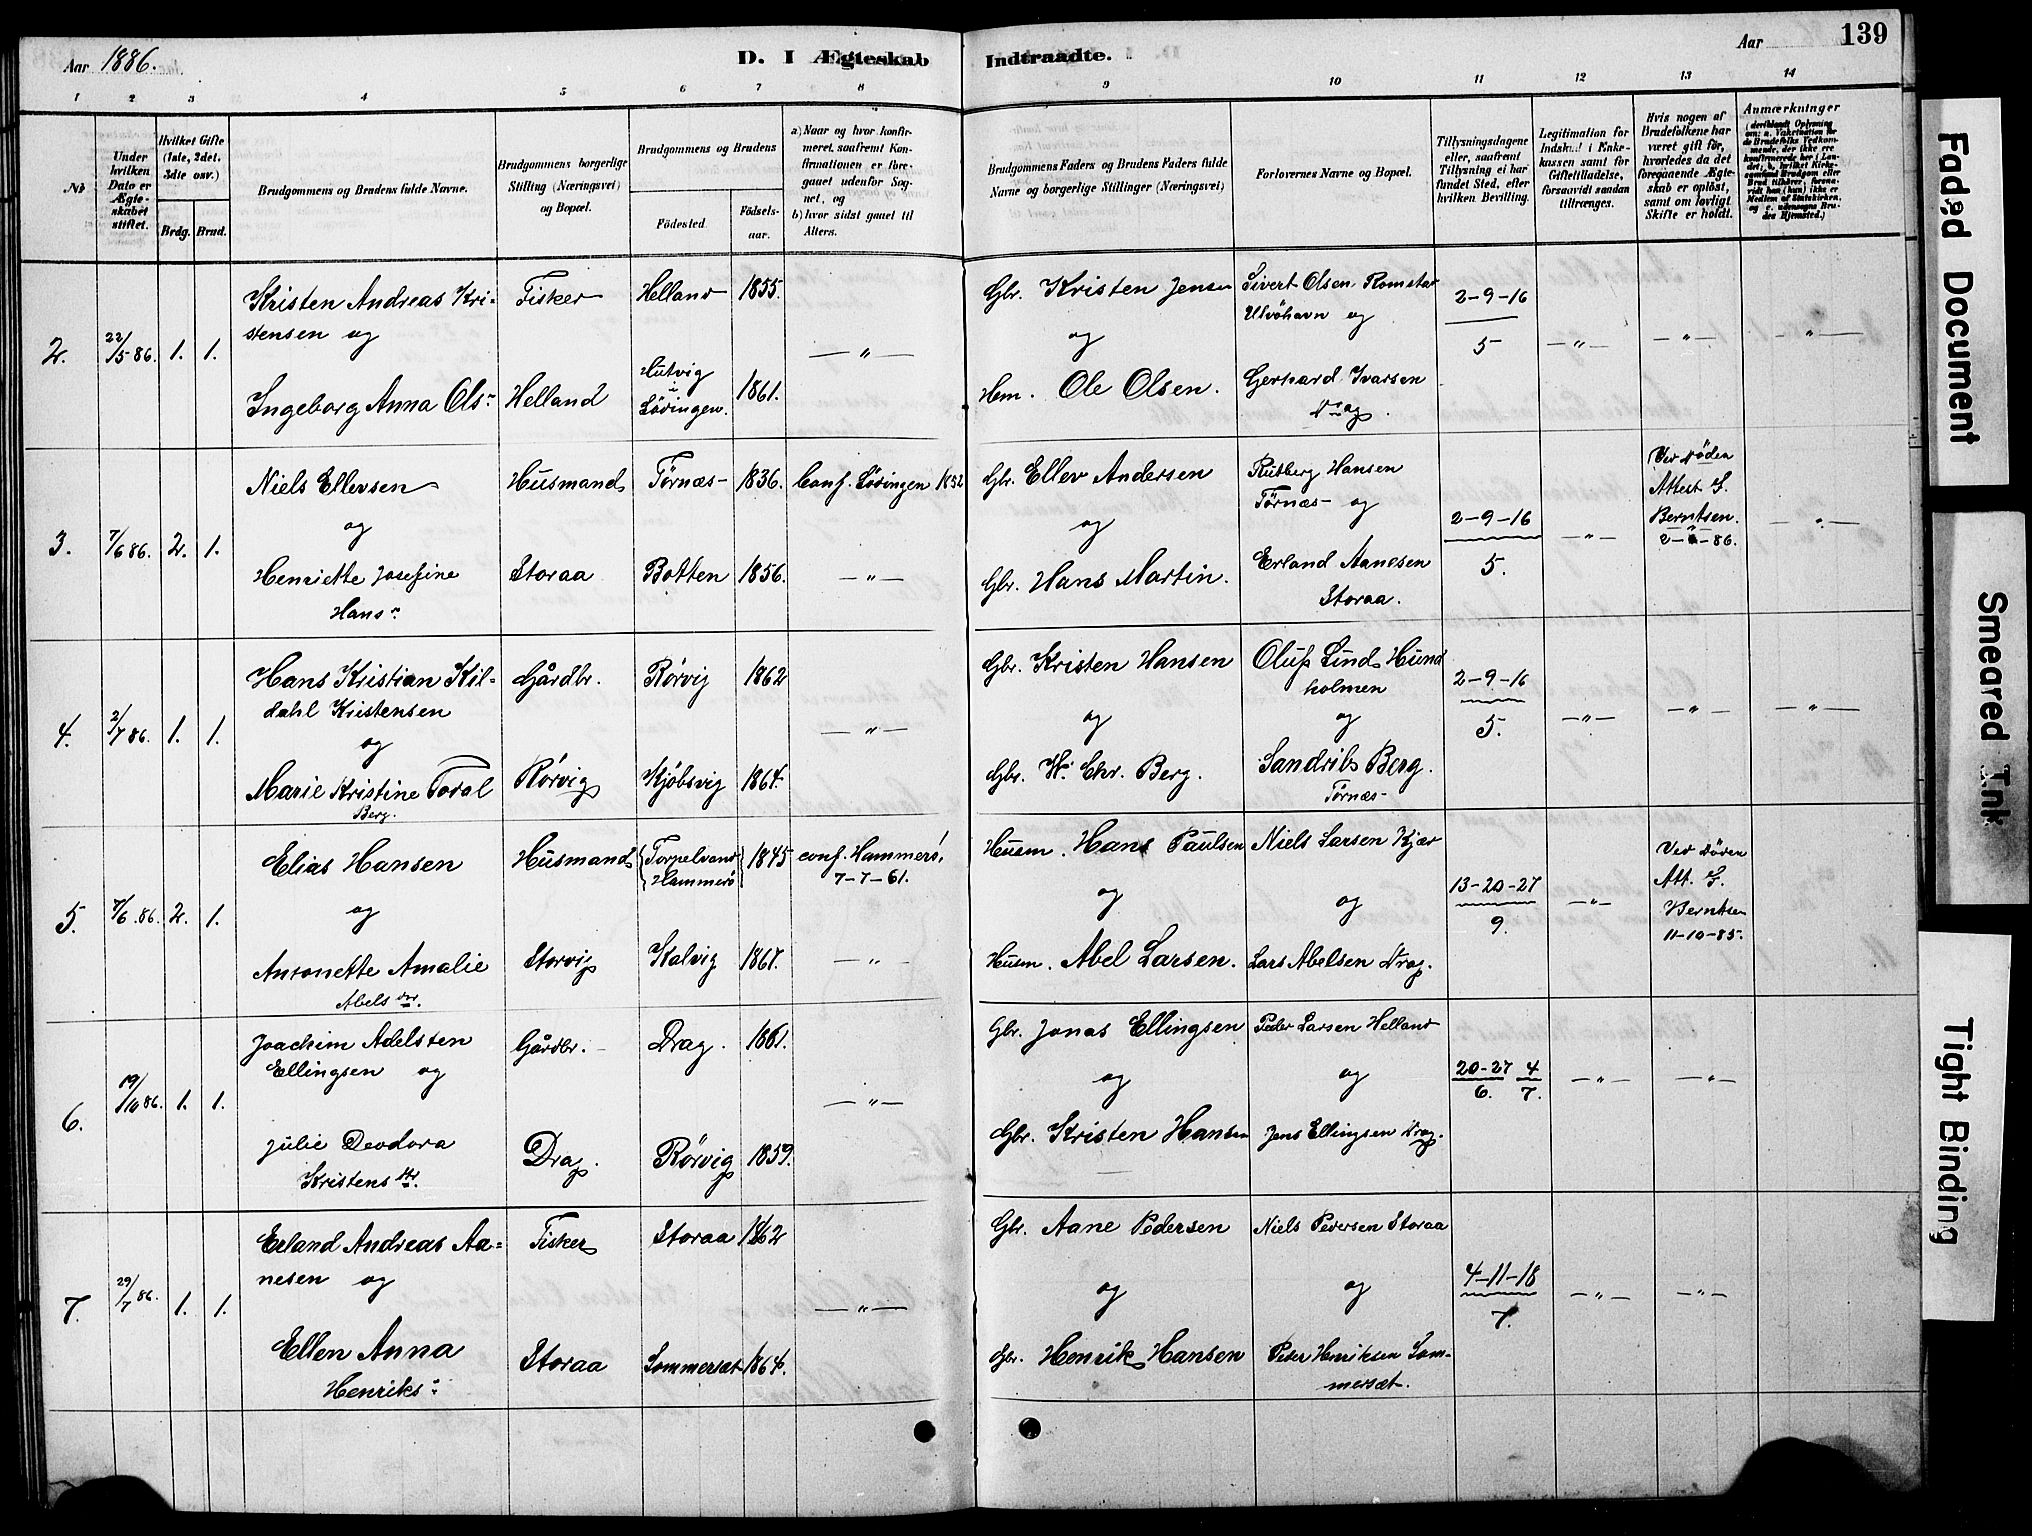 Aar 1886.
D. I Ægteskab Indtraadte.
Aar
139
1 2 3 4 5 6 7 8 9 10 11 12 13 14
No
Under hvilken Dato er Ægteskabet stiftet.
Hvilket Gifte (1ste, 2det. 3die osv.)
Brdg. Brud.
Brudgommens og Brudens fulde Navne.
Brudgommens borgerlige Stilling (Næringsvei) og Bopæl.
Brudgommens og Brudens
Fødested
Fødselsaar.
a) Naar og hvor konfirmeret, saafremt Konfirmationen er foregaaet udenfor Sognet, og
b) hvor sidst gaaet til Alters.
Brudgommens Faders og Brudens Faders fulde Navne og borgerlige Stillinger (Næringsvei)
Forlovernes Navne og Bopæl.
Tillysningsdagene eller, saafremt Tillysning ei har fundet Sted, efter hvilken Bevilling.
Legitimation for Indskud i Enkekassen samt for Giftetilladelse, forsaavidt saadan tiltrænges.
Hvis nogen af Brudefolkene har været gift før, hvorledes da det foregaaende Ægteskab er opløst, samt om lovligt Skifte er holdt.
Anmærkninger
2. 22/5 86. 1. 1.
Kristen Andreas Kri-
stensen og
Ingeborg Anna Ols n
Fisker
Helland
Helland 1855.
Hutvig i Lödingen. 1861.
— " —
Gbr. Kristen Jensen
og
Hm. Ole Olsen.
Sivert Olsen Romstar
Ulvöhavn og
Gerhard Ivarsen
Drag.
2-9-16
5
— " — — " — — " —
3. 7/6 86. 2. 1.
Niels Ellevsen
og
Henriette Josefine
Hans n
Husmand
Storaa
Tørnæs 1836.
Botten 1856.
Conf. Lödingen 1852
— " —
Gbr. Ellev Andersen
og
Gbr. Hans Martin.
Rutberg Hansen
Tørnæs og
Erland Aanesen
Storaa.
2-9-16
5.
— " —
Ved Döden
Attest S.
Berntsen.
— " —
4. 2/7 86. 1. 1.
Hans Kristian Kil-
dahl Kristensen
og
Marie Kristine Toral
Berg.
Gårdbr.
Rörvig
Rörvig 1862
Kjöbsvig 1864.
— " —
Gbr. Kristen Hansen
og
Gbr. H. Chr. Berg.
Oluf Lund Hund
holmen
og
Sandrib Berg.
Tørnæs
2-9-16
5.
— " — — " — — " —
5. 7/6. 86. 2. 1.
Elias Hansen
og
Antonette Amalie
Abels dtr.
Husmand
Storvig
Torpelvand Hammerö 1845
Kalvig 1861.
conf. Hammerö,
7-7-61.
— " —
Husm. Hans Paulsen
og
Husm. Abel Larsen.
Niels Larsen Kjær
og
Lars Abelsen Drag.
13-20-27
9.
— " —
Ved Döden
Att. S.
Berntsen
11-10-85.
6. 19/10 86. 1. 1.
Joachim Adelsten
Ellingsen og
Julie Deodora
Kristens dtr.
Gårdbr.
Drag.
Drag. 1861.
Rörvig 1859.
— " —
Gbr. Jonas Ellingsen
og
Gbr. Kristen Hansen
Peder Larsen Helland
og
Jens Ellingsen Drag.
20-27 4
6. 7.
— " — — " —
7. 29/7 86. 1. 1.
Erland Andreas Aa-
nesen og
Ellen Anna
Henriks n
Fisker
Storaa
Storaa 1862
Sommersæt 1864.
— " —
Gbr. Aane Pedersen
og
Gbr. Henrik Hansen
Niels Pedersen Storaa
og
Peder Henriksen Som-
mersæt.
4-11-18
7.
— " — — " —
Faded Document
Smeared Ink
Tight Binding